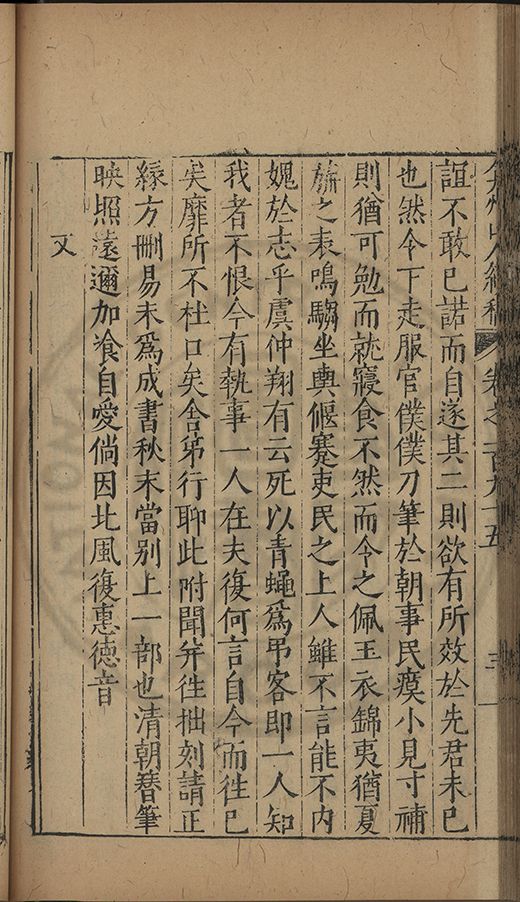 弇州山人續稿 卷之一百九十五 三
誼不敢已諾而自遂其二則欲有所效於先君未已
也然今下走服官僕僕刀筆於朝事民瘼小見寸補
則猶可勉而就寢食不然而今之佩玉衣錦夷猶夏
旃之表鳴騶坐輿偃蹇吏民之上人雖不言能不内
媿於志乎虞仲翔有云死以青蠅爲弔客即一人知
我者不恨今有執事一人在夫復何言自今而徃已
矣靡所不杜口矣舍弟行聊此附聞并徃拙刻請正
緣方刪易未爲成書秋末當别上一部也清朝簪筆
映照遠邇加飧自愛倘因北風復惠德音
又